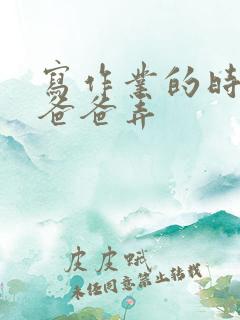 寫作業的時
爸爸弄
皮皮蛾
未经同意禁止转载